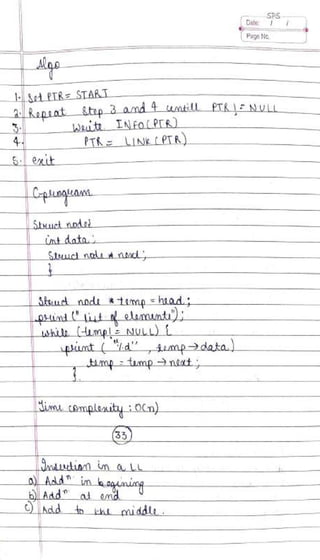 SPS
Date: / /
Page No.
Algo
1. Set PTR = START
2. Repeat Step 3 and 4 untill PTR != NULL
3. Write INFO(PTR)
4. PTR = LINK(PTR)
5. exit
C-program
Struct node{
int data;
Struct node * next;
}
Struct node * temp = head;
print (" list of elements");
while (temp! = NULL) {
print ( "%d" , temp → data)
temp = temp → next ;
}
Time complexity : O(n)
33
Insertion in a LL
a) Addⁿ in begining
b) Addⁿ at end
c) Add to the middle.